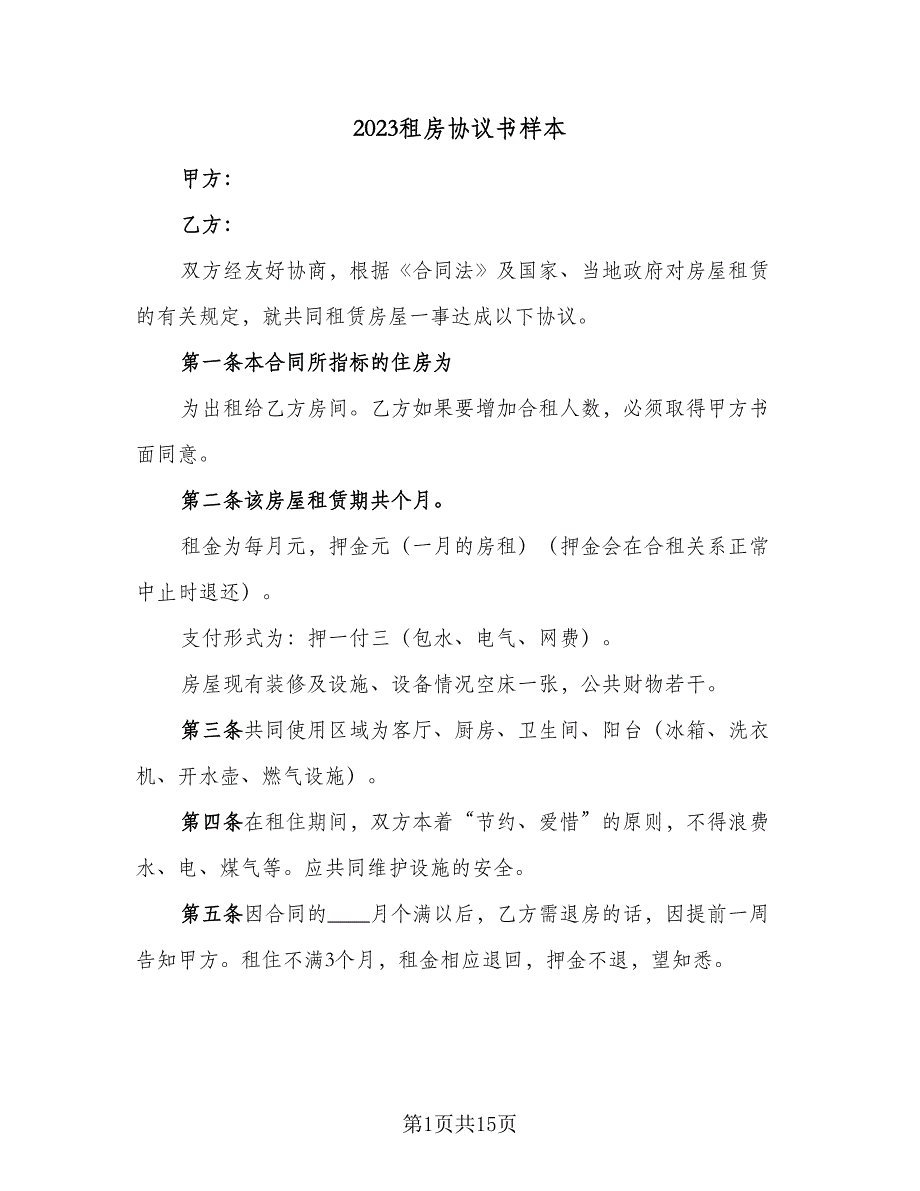 2023租房协议书样本
甲方：
乙方：
双方经友好协商，根据《合同法》及国家、当地政府对房屋租赁
的有关规定，就共同租赁房屋一事达成以下协议。
第一条本合同所指标的住房为
为出租给乙方房间。乙方如果要增加合租人数，必须取得甲方书
面同意。
第二条该房屋租赁期共个月。
租金为每月元，押金元（一月的房租）（押金会在合租关系正常
中止时退还）。
支付形式为：押一付三（包水、电气、网费）。
房屋现有装修及设施、设备情况空床一张，公共财物若干。
第三条共同使用区域为客厅、厨房、卫生间、阳台（冰箱、洗衣
机、开水壶、燃气设施）。
第四条在租住期间，双方本着“节约、爱惜”的原则，不得浪费
水、电、煤气等。应共同维护设施的安全。
第五条因合同的____月个满以后，乙方需退房的话，因提前一周
告知甲方。租住不满3个月，租金相应退回，押金不退，望知悉。
第1页共15页